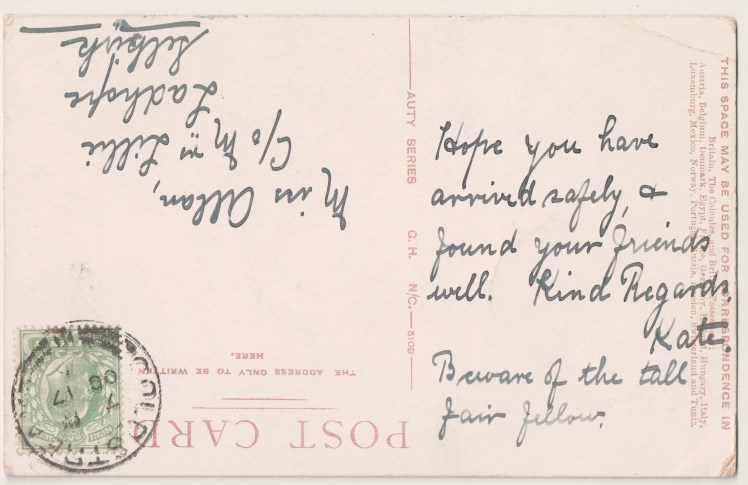 POST CARD
THE ADDRESS ONLY TO BE WRITTEN
HERE.
Miss Allan,
C/o Mrs Lillie
Ladhope
Selkirk
AUTY SERIES G. H. N/C.—5109
THIS SPACE MAY BE USED FOR CORRESPONDENCE IN
Britain, The Colonies and British
Austria, Belgium, Denmark, Egypt, Hungary, Italy,
Luxemburg, Mexico, Norway, Switzerland and Tunis.
Hope you have
arrived safely, &
found your friends
well. Kind Regards.
Kate.
Beware of the tall
fair fellow.
17
06